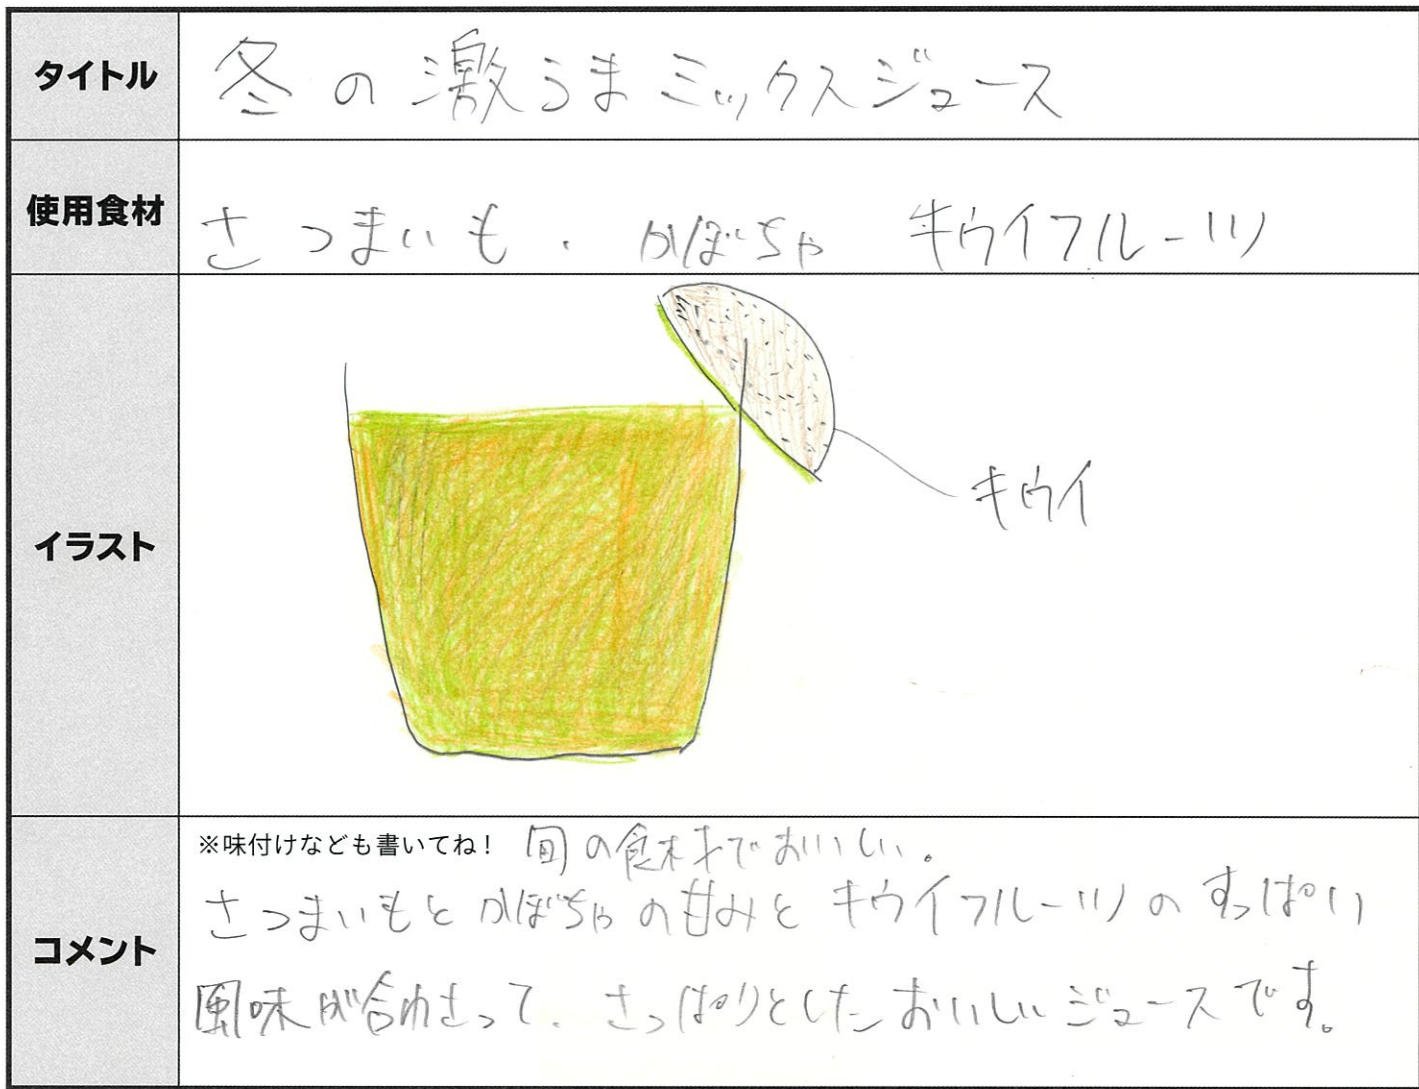 タイトル
冬の激うまミックスジュース
使用食材
さつまいも．かぼちゃ キウイフルーツ
イラスト
キウイ
コメント
※味付けなども書いてね！ 旬の食材でおいしい。
さつまいもとかぼちゃの甘みとキウイフルーツのすっぱい
風味が合わさって、さっぱりとしたおいしいジュースです。